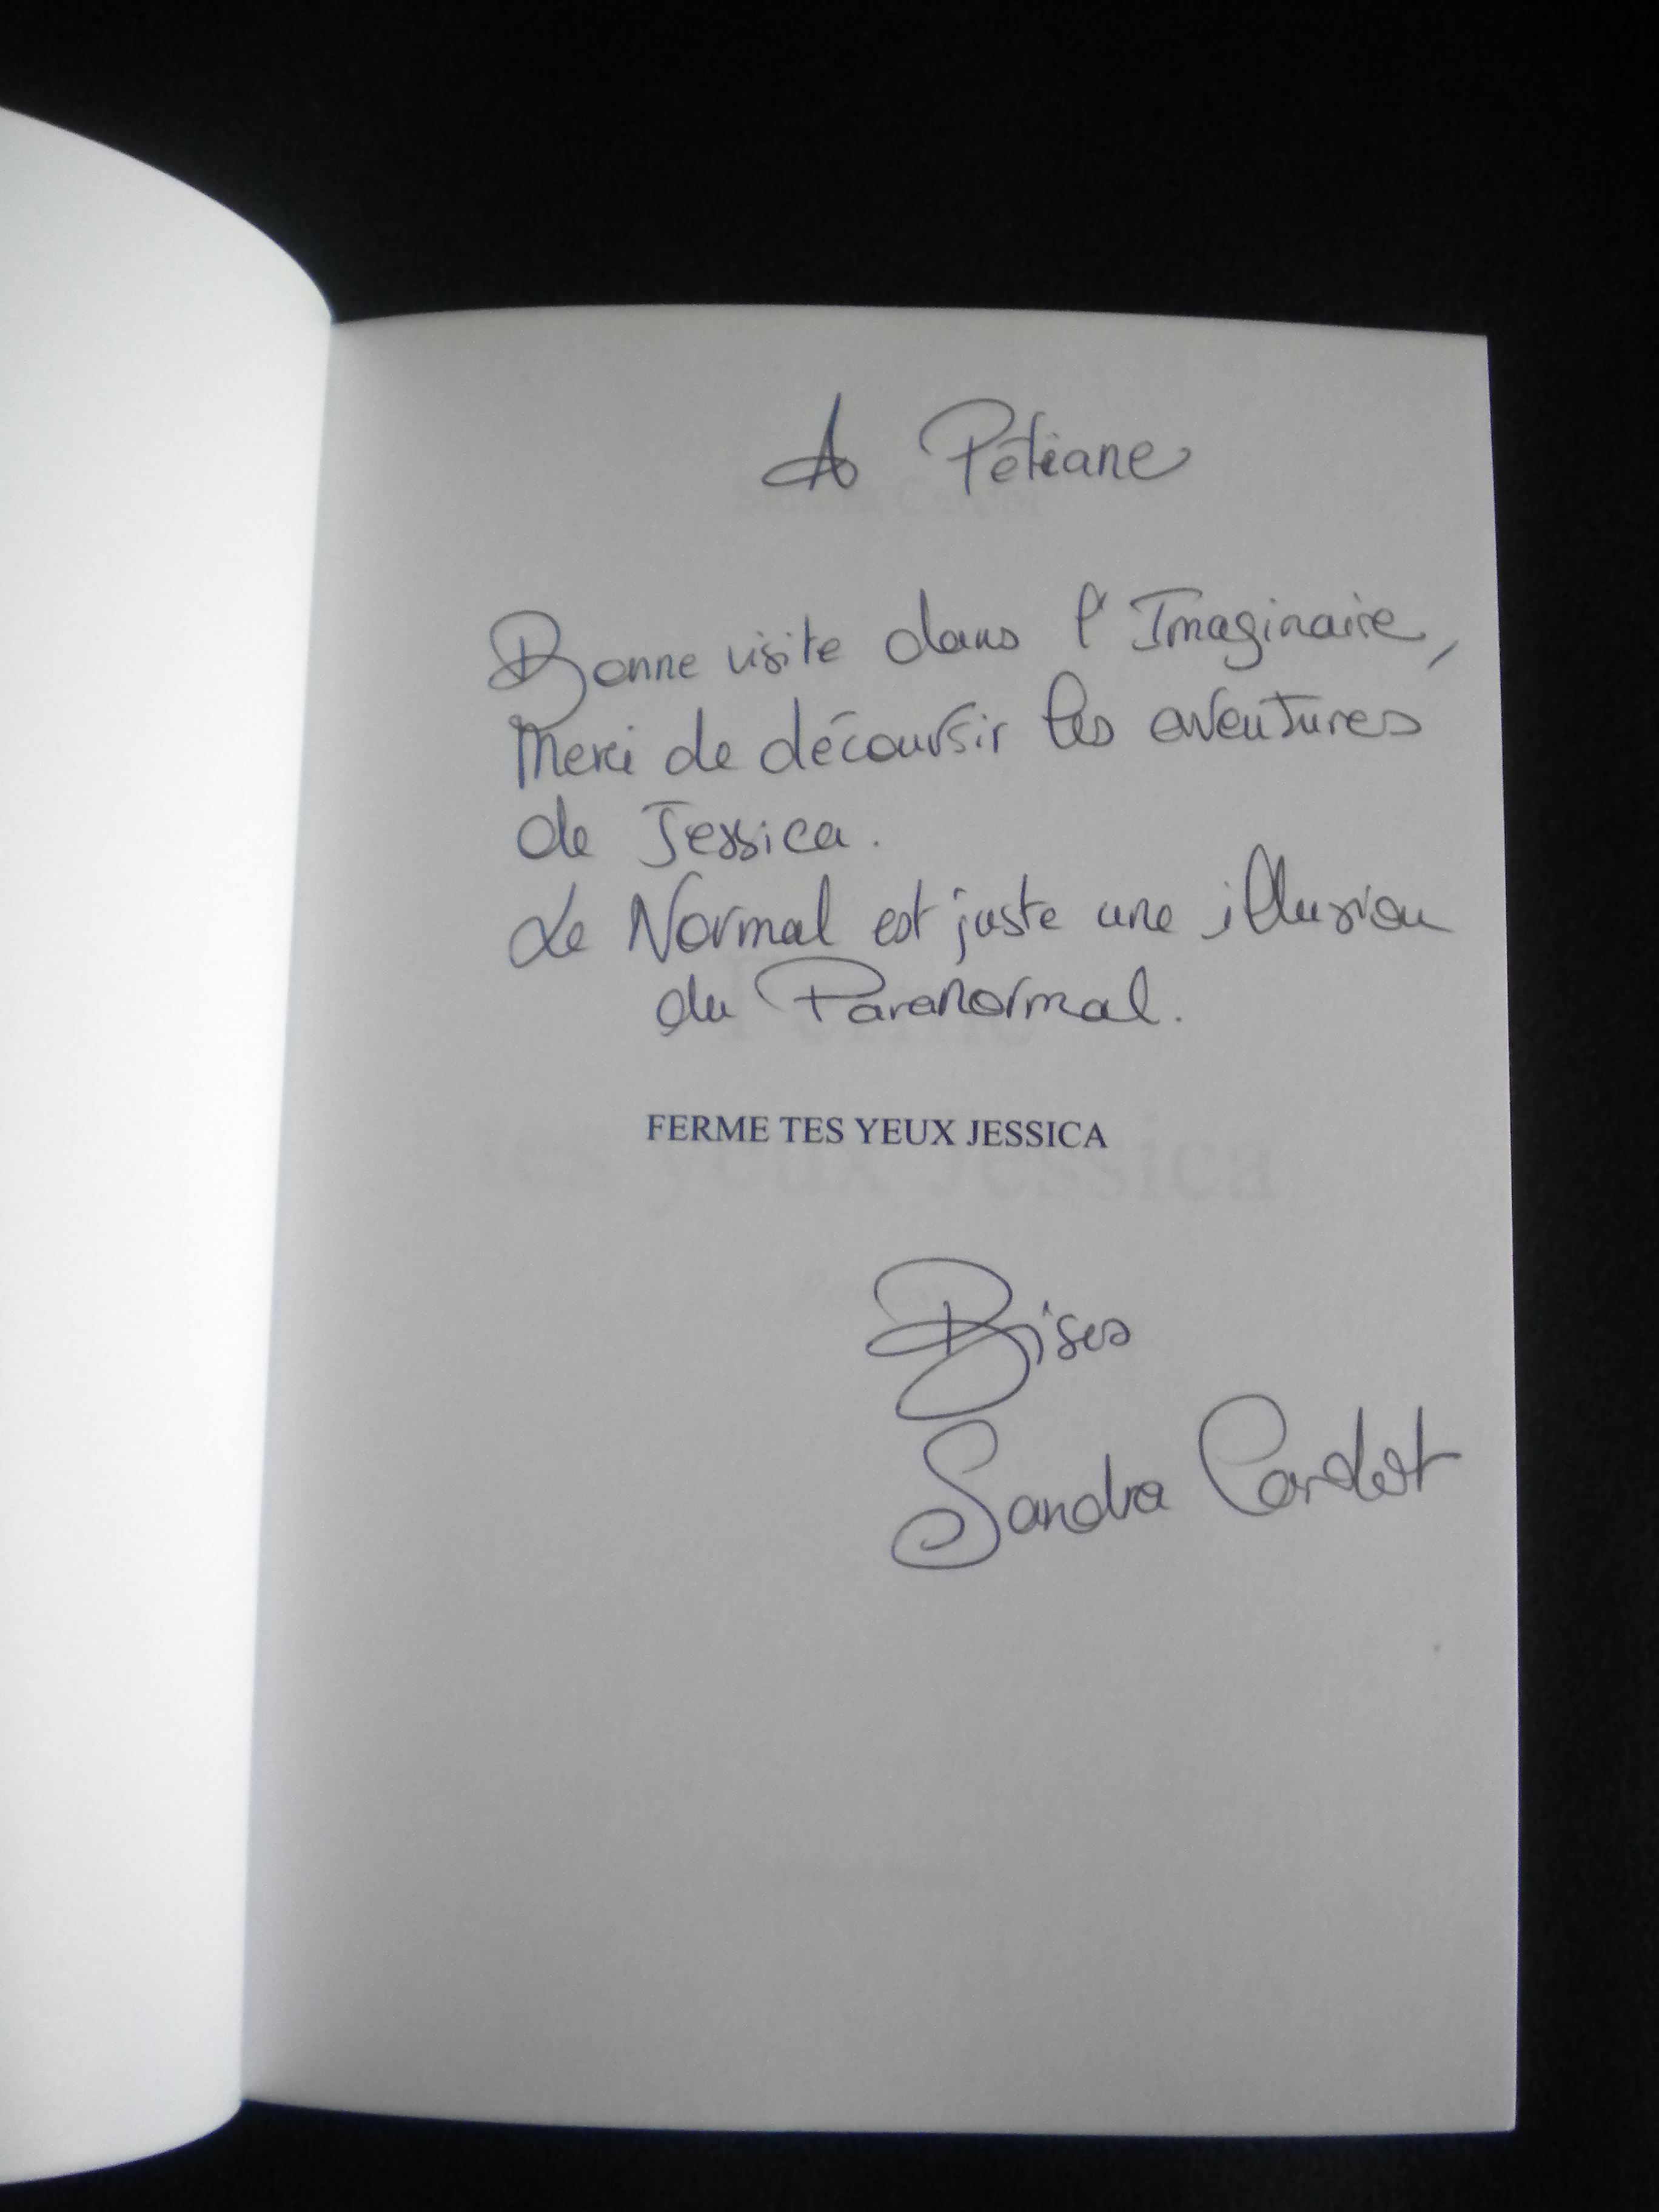 A Péliane
Bonne visite dans l'Imaginaire,
Merci de découvrir les aventures
de Jessica.
Le Normal est juste une illusion
du Paranormal.
FERME TES YEUX JESSICA
tes yeux Jessica
Bises
Sandra Cardot